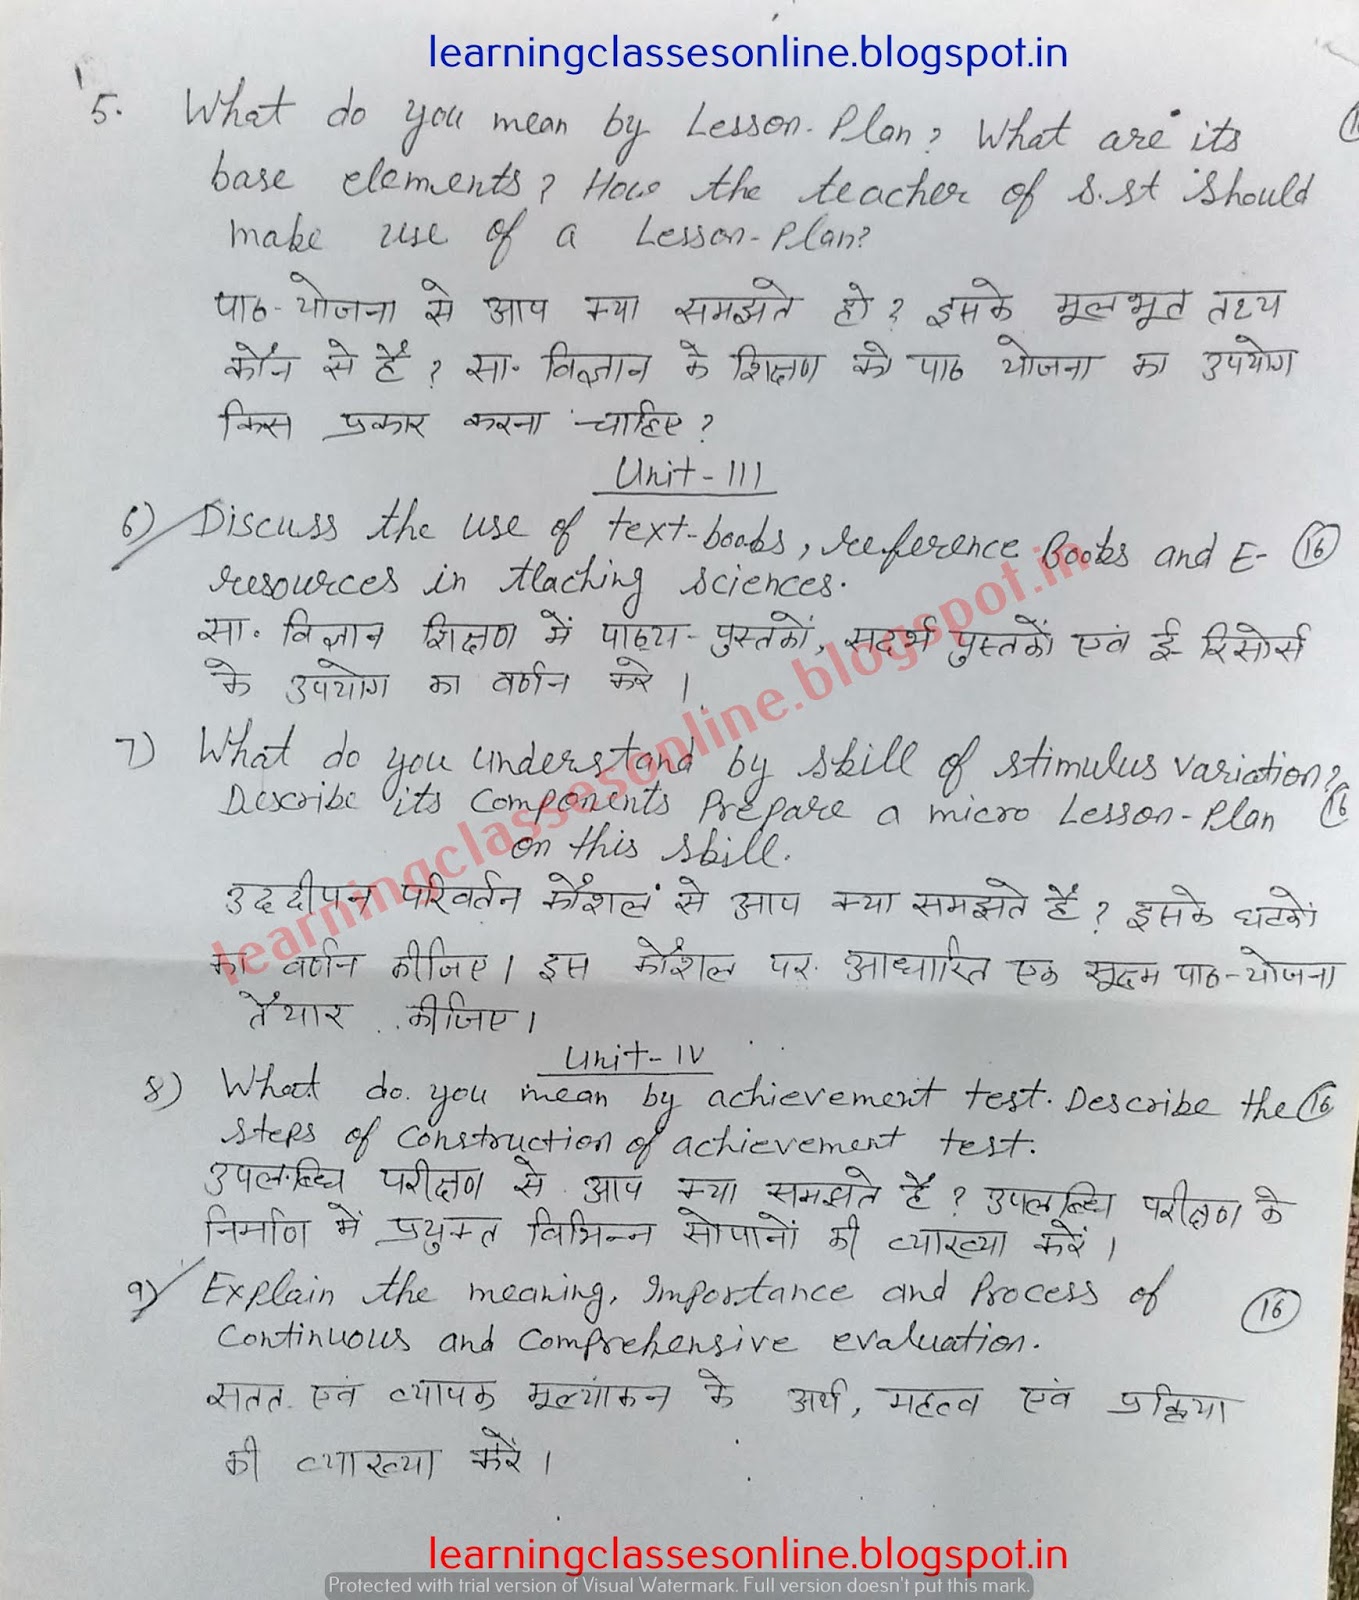 learningclassesonline.blogspot.in
5. What do you mean by Lesson-Plan? What are its
base elements? How the teacher of S.St should
make use of a Lesson-Plan?
पाठ-योजना से आप क्या समझते हो? इसके मूलभूत तथ्य
कौन से हैं? सा. विज्ञान के शिक्षण को पाठ योजना का उपयोग
किस प्रकार करना चाहिए?
Unit-III
6) Discuss the use of text-books, reference Books and E- 16
resources in teaching sciences.
सा. विज्ञान शिक्षण में पाठ्य-पुस्तकों, सदर्भ पुस्तकों एवं ई-रिसोर्स
के उपयोग का वर्णन करे।
7) What do you understand by skill of stimulus variation?
Describe its components Prepare a micro Lesson-Plan 16
on this skill.
उद्दीपन परिवर्तन कौशल से आप क्या समझते हैं? इसके घटकों
का वर्णन कीजिए। इस कौशल पर आधारित एक सूक्ष्म पाठ-योजना
तैयार कीजिए।
Unit-IV
8) What do you mean by achievement test. Describe the 16
steps of construction of achievement test.
उपलब्धि परीक्षण से आप क्या समझते हैं? उपलब्धि परीक्षण के
निर्माण में प्रयुक्त विभिन्न सोपानों की व्याख्या करें।
9) Explain the meaning, Importance and Process of 16
continuous and comprehensive evaluation.
सतत एवं व्यापक मूल्यांकन के अर्थ, महत्व एवं प्रक्रिया
की व्याख्या करें।
learningclassesonline.blogspot.in
learningclassesonline.blogspot.in
Protected with trial version of Visual Watermark. Full version doesn't put this mark.